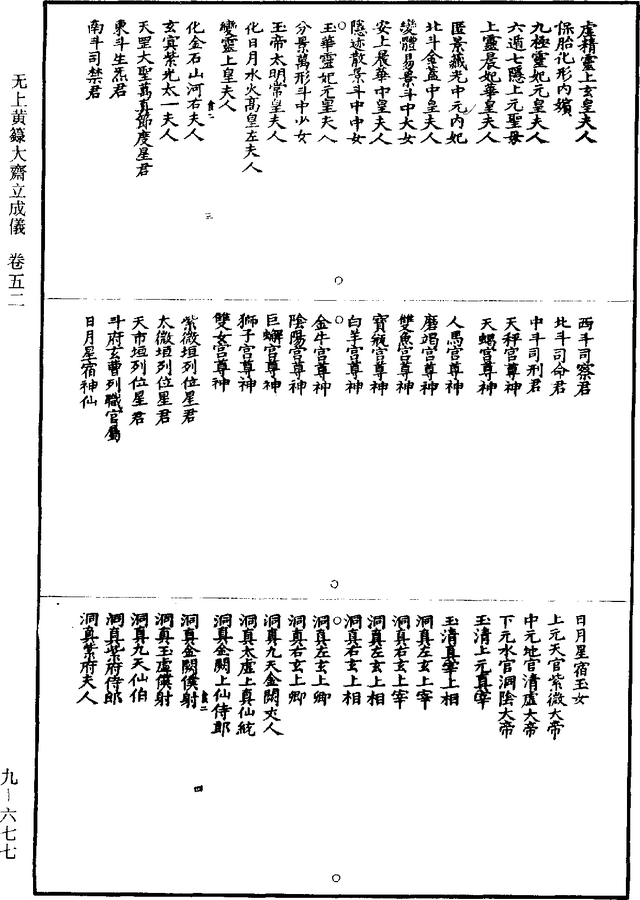 虛精靈上玄皇夫人
保胎化形內嬪
九極靈妃元皇夫人
六遁七隱上元聖母
上靈晨妃華皇夫人
匿景藏光中元內妃
北斗金蓋中皇夫人
變體易景斗中大女
安上晨華中皇夫人
隱迹散景斗中中女
○
玉華靈妃元皇夫人
分景萬形斗中少女
玉帝太明常皇夫人
化日月水火高皇左夫人
變靈上皇夫人
化金石山河右夫人
玄賓紫光太一夫人
天罡大聖萬真節度星君
東斗生炁君
南斗司禁君
三
西斗司察君
北斗司命君
中斗司刑君
天秤宮尊神
天蝎宮尊神
人馬宮尊神
磨竭宮尊神
雙魚宮尊神
寶瓶宮尊神
白羊宮尊神
○
金牛宮尊神
陰陽宮尊神
巨蟹宮尊神
獅子宮尊神
雙女宮尊神
紫微垣列位星君
太微垣列位星君
天市垣列位星君
斗府玄曹列職官屬
日月星宿神仙
日月星宿玉女
上元天官紫微大帝
中元地官清虛大帝
下元水官洞陰大帝
玉清上元真宰
玉清真宰上相
洞真左玄上宰
洞真右玄上宰
洞真左玄上相
洞真右玄上相
○
洞真左玄上卿
洞真右玄上卿
洞真九天金闕夫人
洞真太虛上真仙統
洞真金闕上仙侍郎
洞真金闕僕射
洞真玉虛僕射
洞真九天仙伯
洞真紫府侍郎
洞真紫府夫人
四
无上黃籙大齋立成儀 卷五二
九—六七七